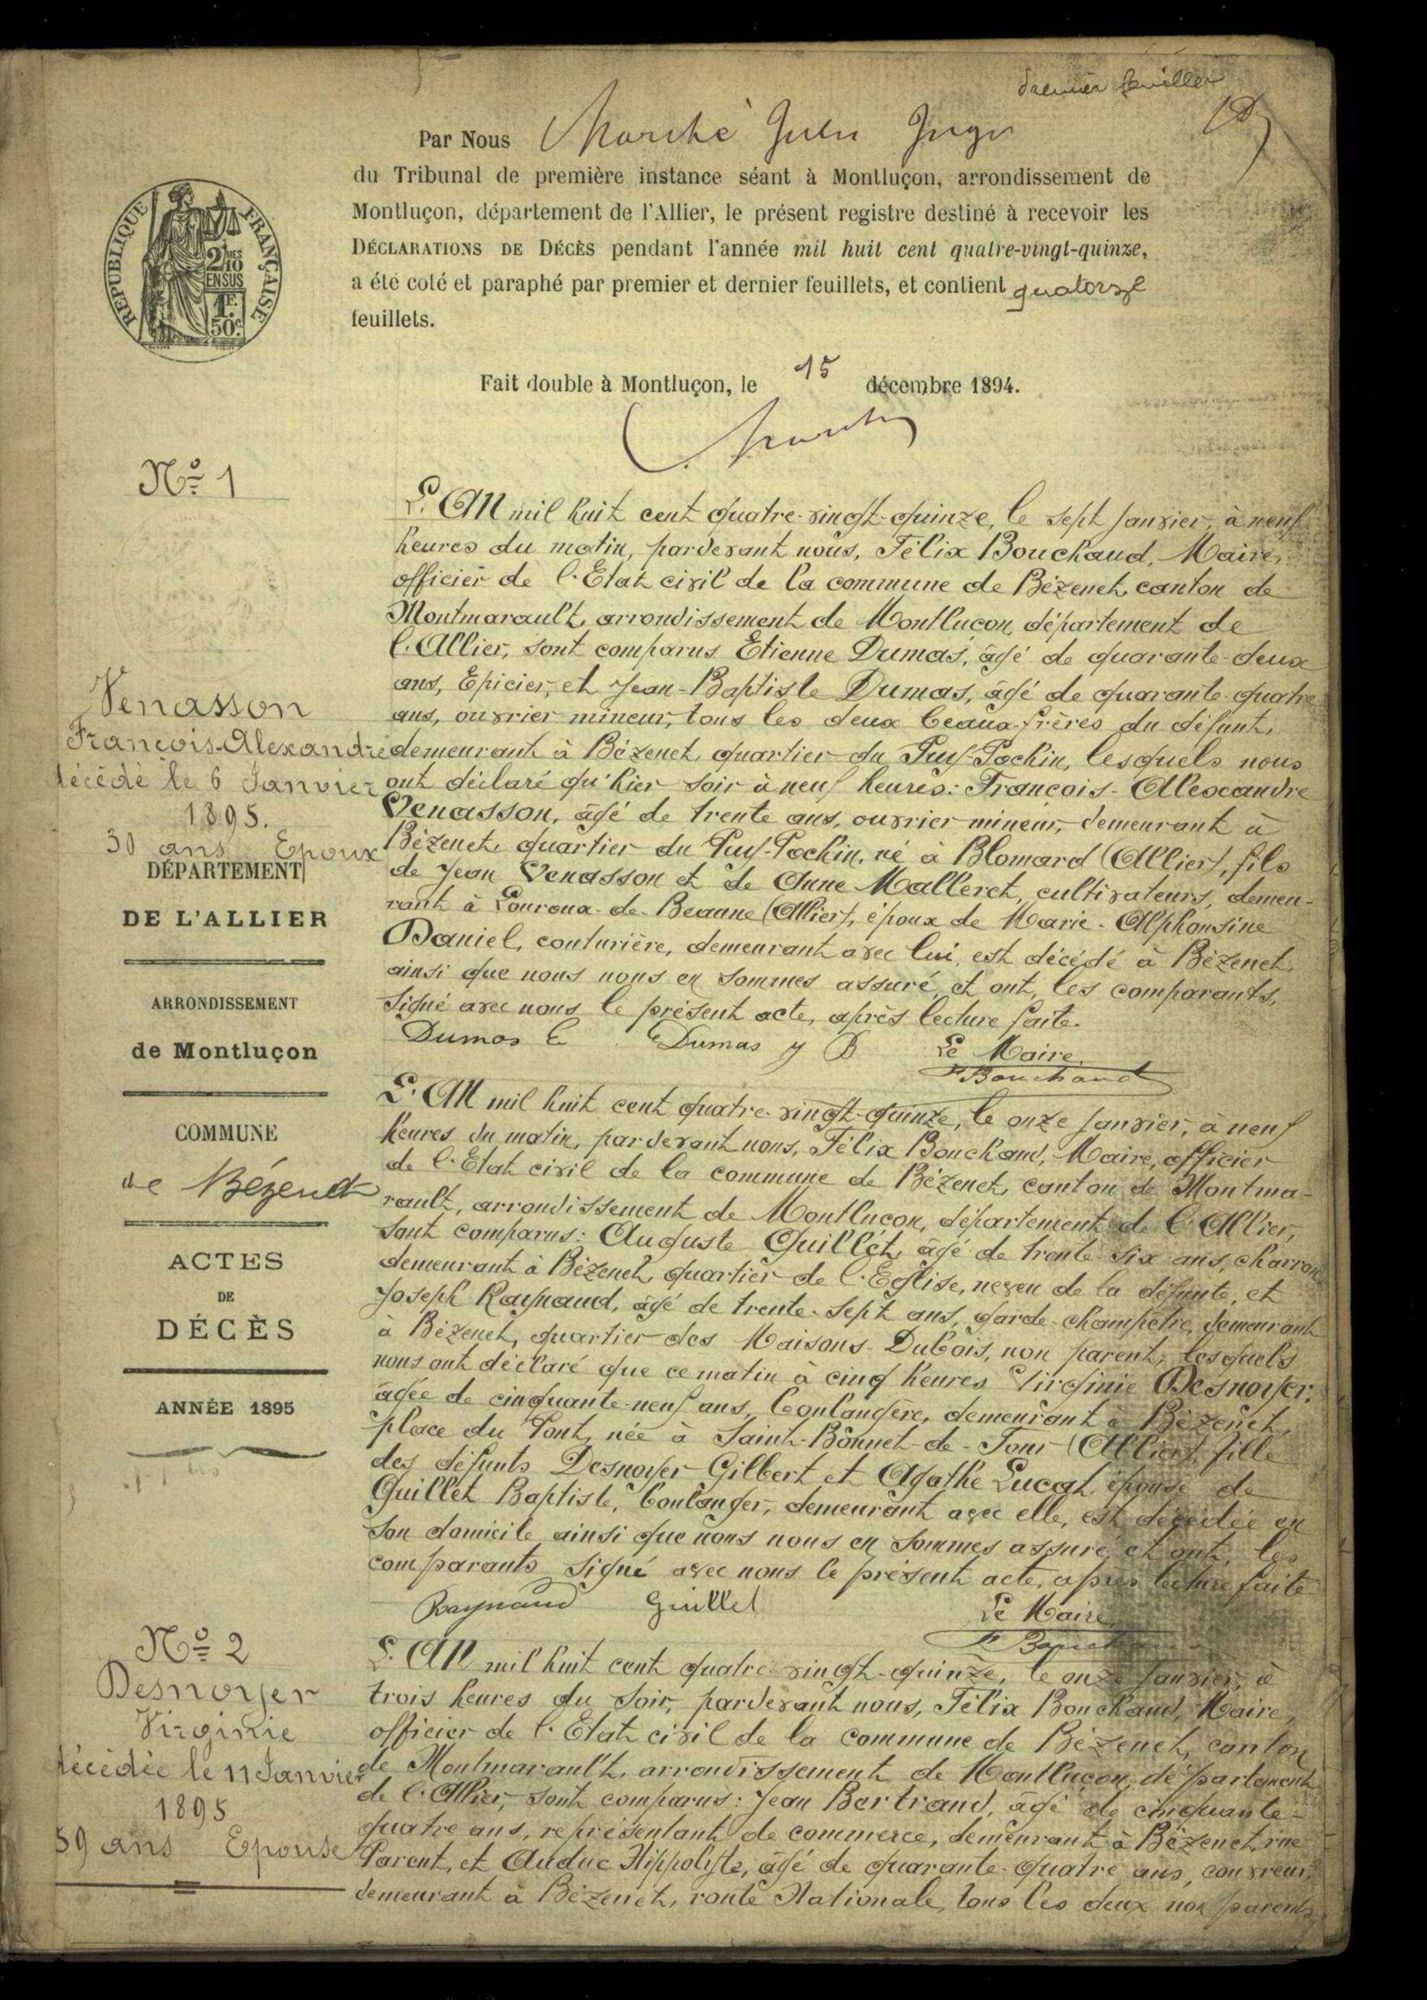 premier feuillet
Par Nous Marché Jules Juge
du Tribunal de première instance séant à Montluçon, arrondissement de
Montluçon, département de l'Allier, le présent registre destiné à recevoir les
DÉCLARATIONS DE DÉCÈS pendant l'année mil huit cent quatre-vingt-quinze,
a été coté et paraphé par premier et dernier feuillets, et contient quatorze
feuillets.
RÉPUBLIQUE FRANÇAISE
2/10 MES
EN SUS
1F.
50c
Fait double à Montluçon, le 15 décembre 1894.
Nº 1
Venasson
François-Alexandre
décédé le 6 Janvier
1895.
30 ans Epoux
DÉPARTEMENT
DE L'ALLIER
ARRONDISSEMENT
de Montluçon
COMMUNE
de Bézenet
ACTES
DE
DÉCÈS
ANNÉE 1895
L'An mil huit cent quatre-vingt-quinze, le sept janvier, à neuf
heures du matin, pardevant nous, Félix Bouchaud, Maire,
officier de l'Etat civil de la commune de Bézenet, canton de
Montmarault, arrondissement de Montluçon, département de
l'Allier, sont comparus Etienne Dumas, âgé de quarante-deux
ans, Epicier, et Jean-Baptiste Dumas, âgé de quarante-quatre
ans, ouvrier mineur, tous les deux beaux-frères du défunt,
demeurant à Bézenet, quartier du Puy-Pochin, lesquels nous
ont déclaré qu'hier soir à neuf heures: François-Alexandre
Venasson, âgé de trente ans, ouvrier mineur, demeurant à
Bézenet, quartier du Puy-Pochin, né à Blomard (Allier), fils
de Jean Venasson et de Anne Malleret, cultivateurs, demeu-
rant à Louroux-de-Beaune (Allier), époux de Marie-Alphonsine
Daniel, couturière, demeurant avec lui, est décédé à Bézenet,
ainsi que nous nous en sommes assuré, et ont, les comparants,
signé avec nous le présent acte, après lecture faite.
Dumas E Dumas J B Le Maire
F Bouchaud
L'An mil huit cent quatre-vingt-quinze, le onze janvier, à neuf
heures du matin, pardevant nous, Félix Bouchaud, Maire, officier
de l'Etat civil de la commune de Bézenet, canton de Montma-
rault, arrondissement de Montluçon, département de l'Allier,
sont comparus: Auguste Guillet, âgé de trente-six ans, charron
demeurant à Bézenet, quartier de l'Eglise, neveu de la défunte, et
Joseph Raynaud, âgé de trente-sept ans, garde-champêtre, demeurant
à Bézenet, quartier des Maisons-Dubois, non parent, lesquels
nous ont déclaré que ce matin à cinq heures Virginie Desnoyer,
âgée de cinquante-neuf ans, boulangère, demeurant à Bézenet,
place du Pont, née à Saint-Bonnet-de-Four (Allier), fille
des défunts Desnoyer Gilbert et Agathe Lucat, épouse de
Guillet Baptiste, boulanger, demeurant avec elle, est décédée en
son domicile ainsi que nous nous en sommes assuré, et ont, les
comparants signé avec nous le présent acte, après lecture faite
Raynaud Guillet Le Maire
F Bouchaud
Nº 2
Desnoyer
Virginie
décédée le 11 Janvier
1895
59 ans Epouse
L'An mil huit cent quatre-vingt-quinze, le onze janvier, à
trois heures du soir, pardevant nous, Félix Bouchaud, Maire,
officier de l'Etat civil de la commune de Bézenet, canton
de Montmarault, arrondissement de Montluçon, département
de l'Allier, sont comparus: Jean Bertrand, âgé de cinquante-
quatre ans, représentant de commerce, demeurant à Bézenet, rue
Parent, et Auduc Hippolyte, âgé de quarante-quatre ans, couvreur,
demeurant à Bézenet, route Nationale, tous les deux non parents,